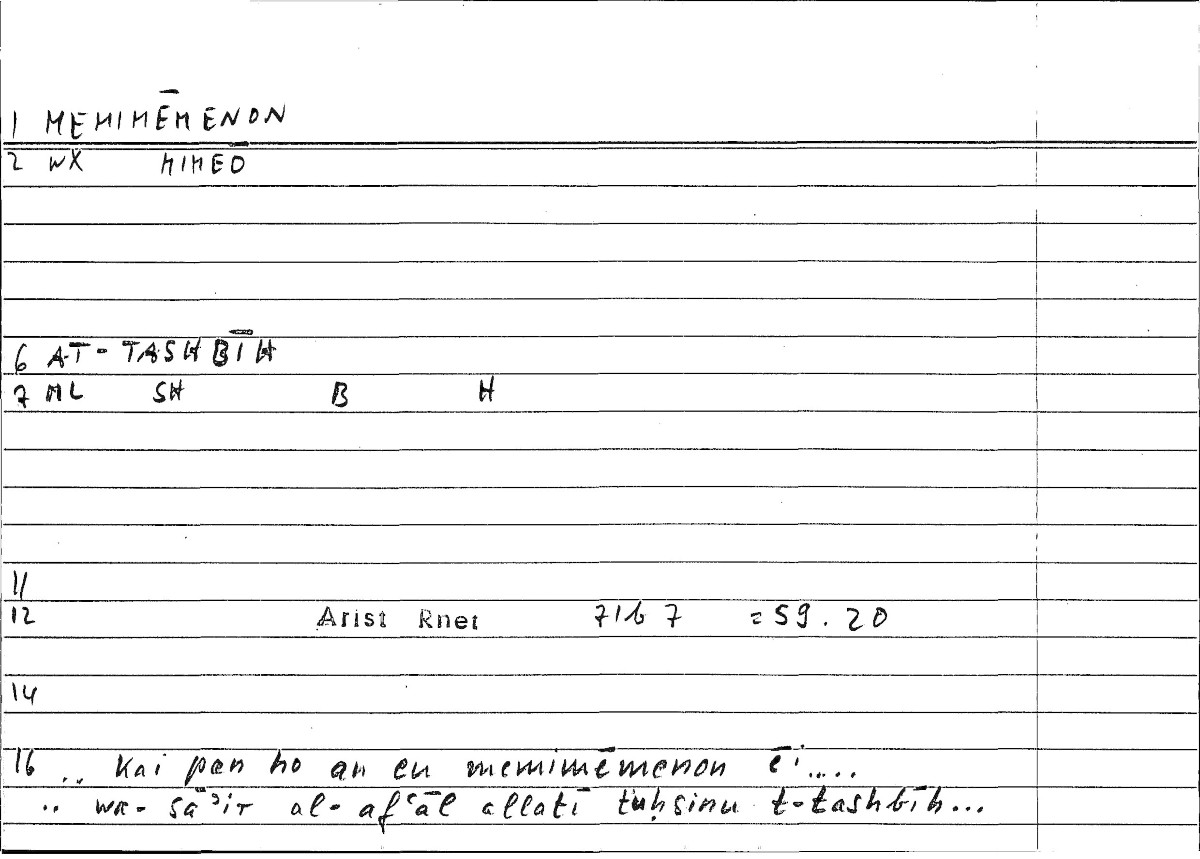 1 MEMIMĒMENON
2 WX MIMEŌ
6 AT-TASHBĪH
7 ML SH B H
11
12 Arist Rhet 71b7 =59.20
14
16 .. kai pan ho an eu memimēmenon ēi.....
.. wa-sāʾir al-afʿāl allatī tuḥsinu t-tashbīh...